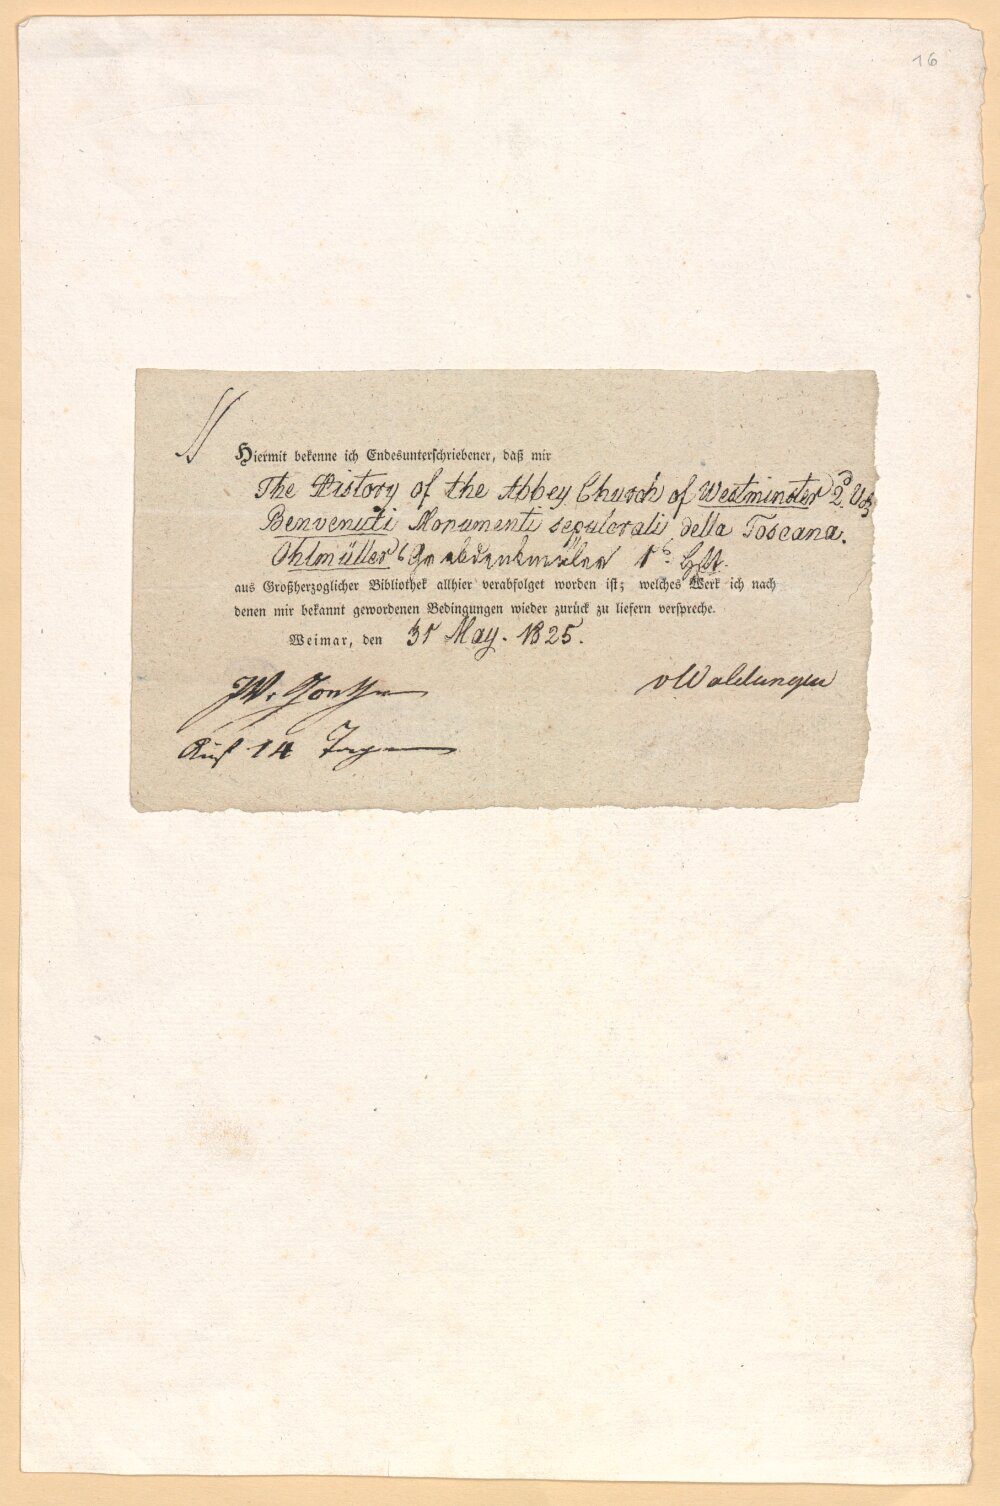 16
Hiermit bekenne ich Endesunterschriebener, daß mir
The History of the Abbey Church of Westminster 2d
Benvenuti Monumenti sepulcrali della Toscana.
Ohlmüller's Grabdenkmäler 1s Hft.
aus Großherzoglicher Bibliothek allhier verabfolget worden ist; welches Werk ich nach
denen mir bekannt gewordenen Bedingungen wieder zurück zu liefern verspreche.
Weimar, den 31 May. 1825.
vWaldungen
Auf 14 Tage